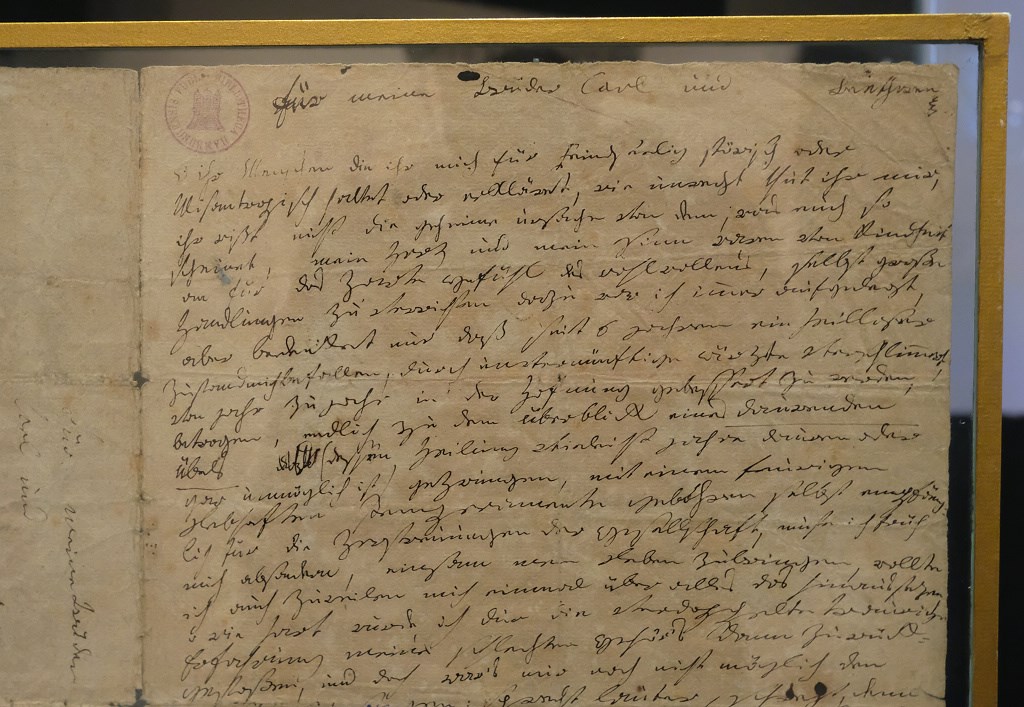 für meine Brüder Carl und Beethowen
o ihr Menschen die ihr mich für Feindseelig störisch oder
Misantropisch haltet oder erkläret, wie unrecht thut ihr mir,
ihr wißt nicht die geheime urßache von dem, was euch so
scheinet, mein Herz und mein Sinn waren von Kindheit
an für das Zarte Gefühl des wohlwollens, selbst große
Handlungen zu verrichten dazu war ich imer aufgelegt,
aber bedenket nur daß seit 6 jahren ein heilloser
Zustand mich befallen, durch unvernünftige ärzte verschlimert,
von jahr zu jahr in der Hofnung gebessert zu werden,
betrogen, endlich zu dem überblick eines daurenden
übels (dessen Heilung vieleicht jahre dauren oder
gar unmöglich ist) gezwungen, mit einem feurigen
Lebhaften Temperamente gebohren selbst empfäng
lich für die Zerstreuungen der Gesellschaft, muste ich früh
mich absondern, einsam mein Leben zubringen, wollte
ich auch zuweilen mich einmal über alles das hinaussezen,
o wie hart wurde ich dur die verdoppelte traurige
Erfahrung meines schlechten Gehör's dann zurück-
gestoßen, und doch war's mir noch nicht möglich den
sprecht lauter, schreyt, denn
für meine Brüder
Carl und